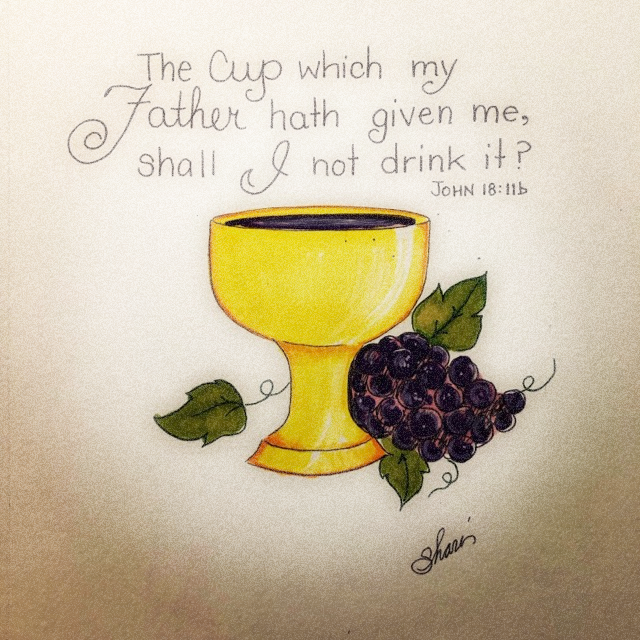 The Cup which my
Father hath given me,
shall I not drink it?
JOHN 18:11b
Shari